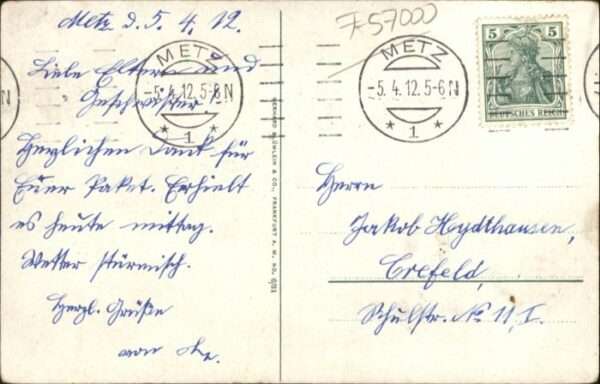 Metz d. 5. 4. 12.
Liebe Eltern und
Geschwister!
Herzlichen Dank für
Euer Paket. Erhielt
es heute mittag.
Wetter stürmisch.
Herzl. Grüße
von
7-57000
METZ
-5.4.12.5-6N
* 1 *
METZ
-5.4.12.5-6N
* 1 *
5 5
DEUTSCHES REICH
FRANKFURT A. M.
Herrn
Jakob Heydthausen,
Crefeld,
Schulstr. No 11, I.